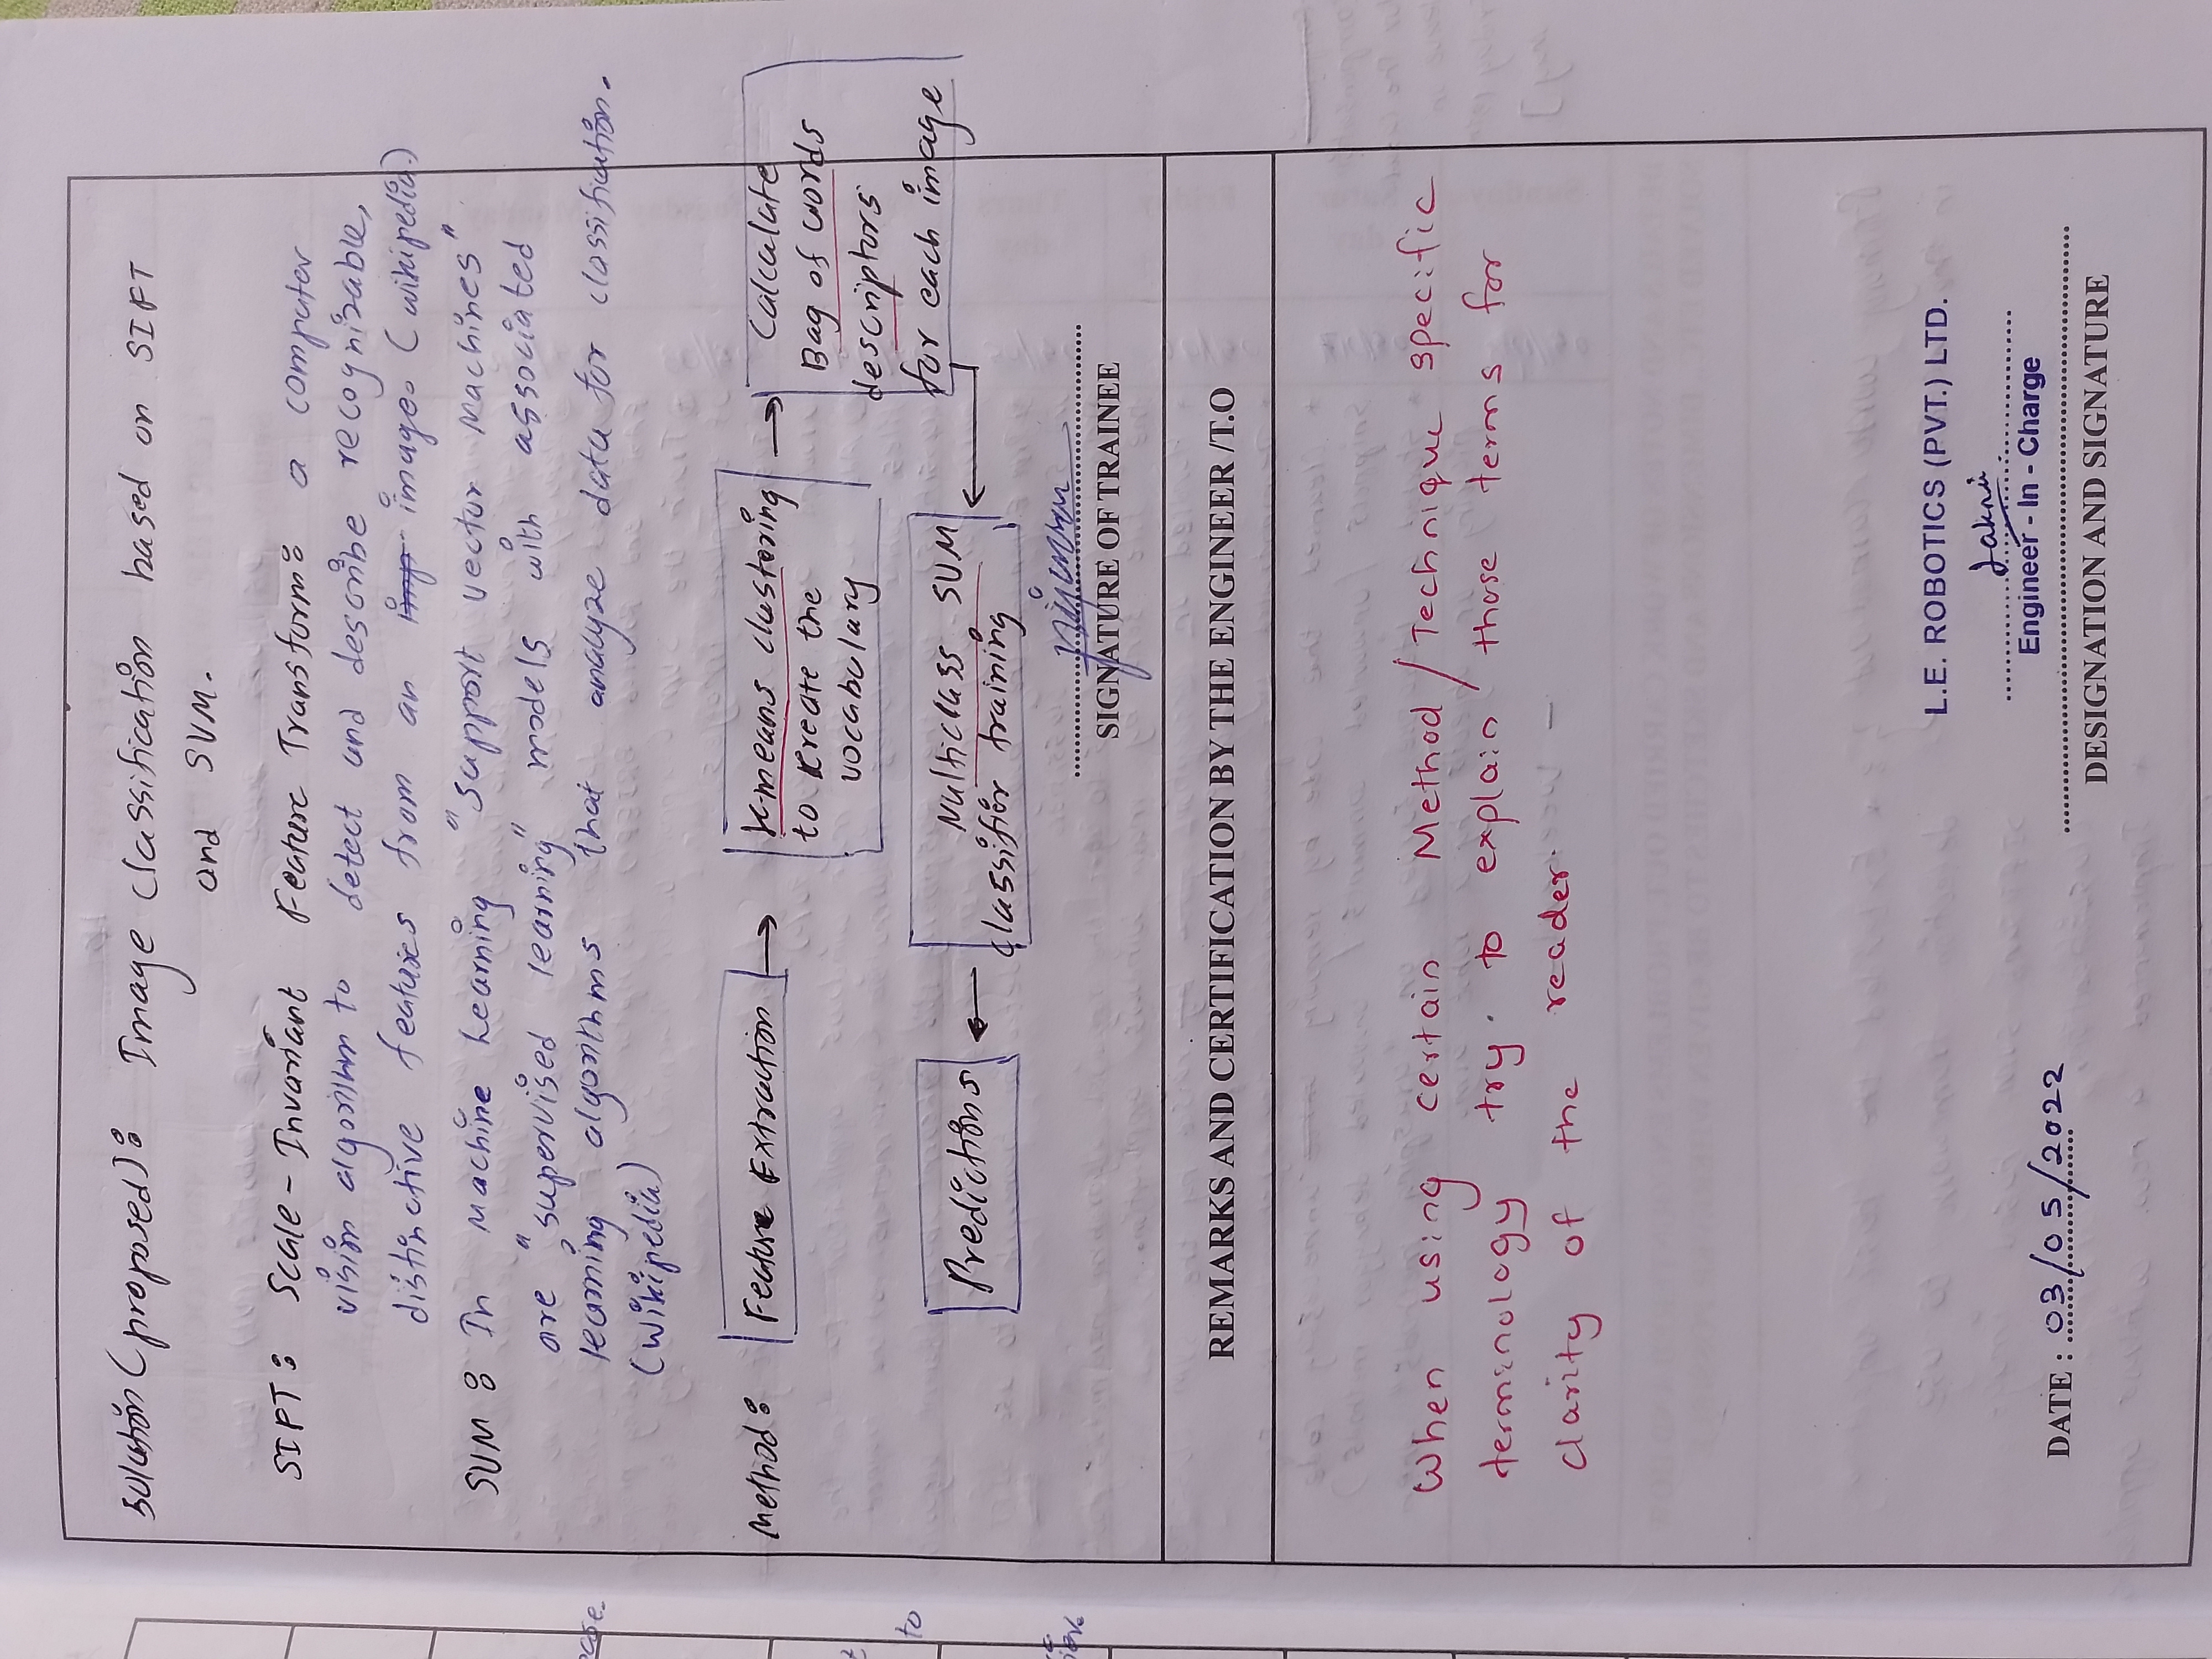 Solution (proposed): Image classification based on SIFT
and SVM.
SIFT: Scale-Invariant Feature Transform: a computer
vision algorithm to detect and describe recognizable,
distinctive features from an imp image. (wikipedia)
SVM: In Machine Learning "Support vector Machines"
are "supervised learning" models with associated
learning algorithms that analyze data for classification.
(Wikipedia)
Method:
Feature Extraction
K-means clustering
to create the
vocabulary
Calculate
Bag of words
descriptors
for each image
Multiclass SVM
classifier training
Predictions
SIGNATURE OF TRAINEE
REMARKS AND CERTIFICATION BY THE ENGINEER /T.O
When using certain Method / Technique specific
terminology try to explain those terms for
clarity of the reader.
L.E. ROBOTICS (PVT.) LTD.
Engineer - In - Charge
DATE : 03/05/2022
DESIGNATION AND SIGNATURE
to